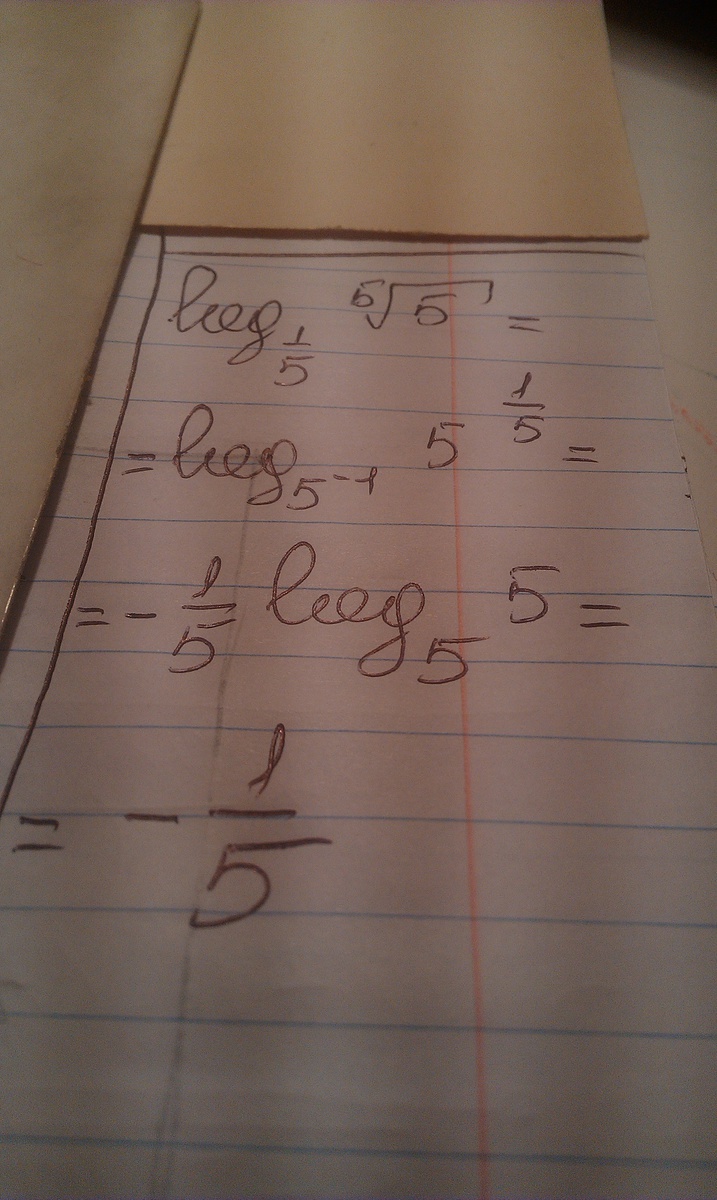 log_{\frac{1}{5}} \sqrt[5]{5} =
= log_{5^{-1}} 5^{\frac{1}{5}} =
= - \frac{1}{5} log_5 5 =
= - \frac{1}{5}